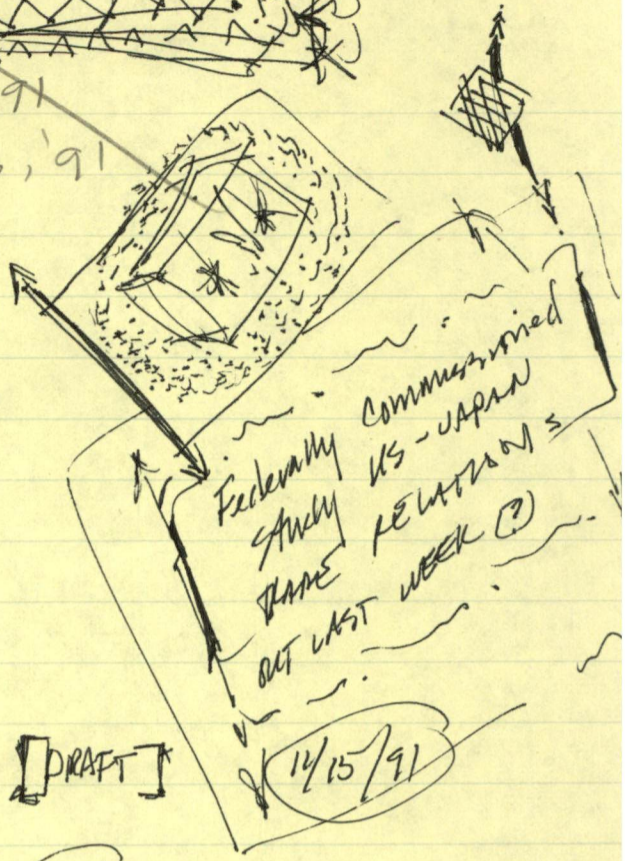 91
, '91
Federally Commissioned
Study US-JAPAN
TRADE RELATIONS
OUT LAST WEEK (?)
[DRAFT]
11/15/91